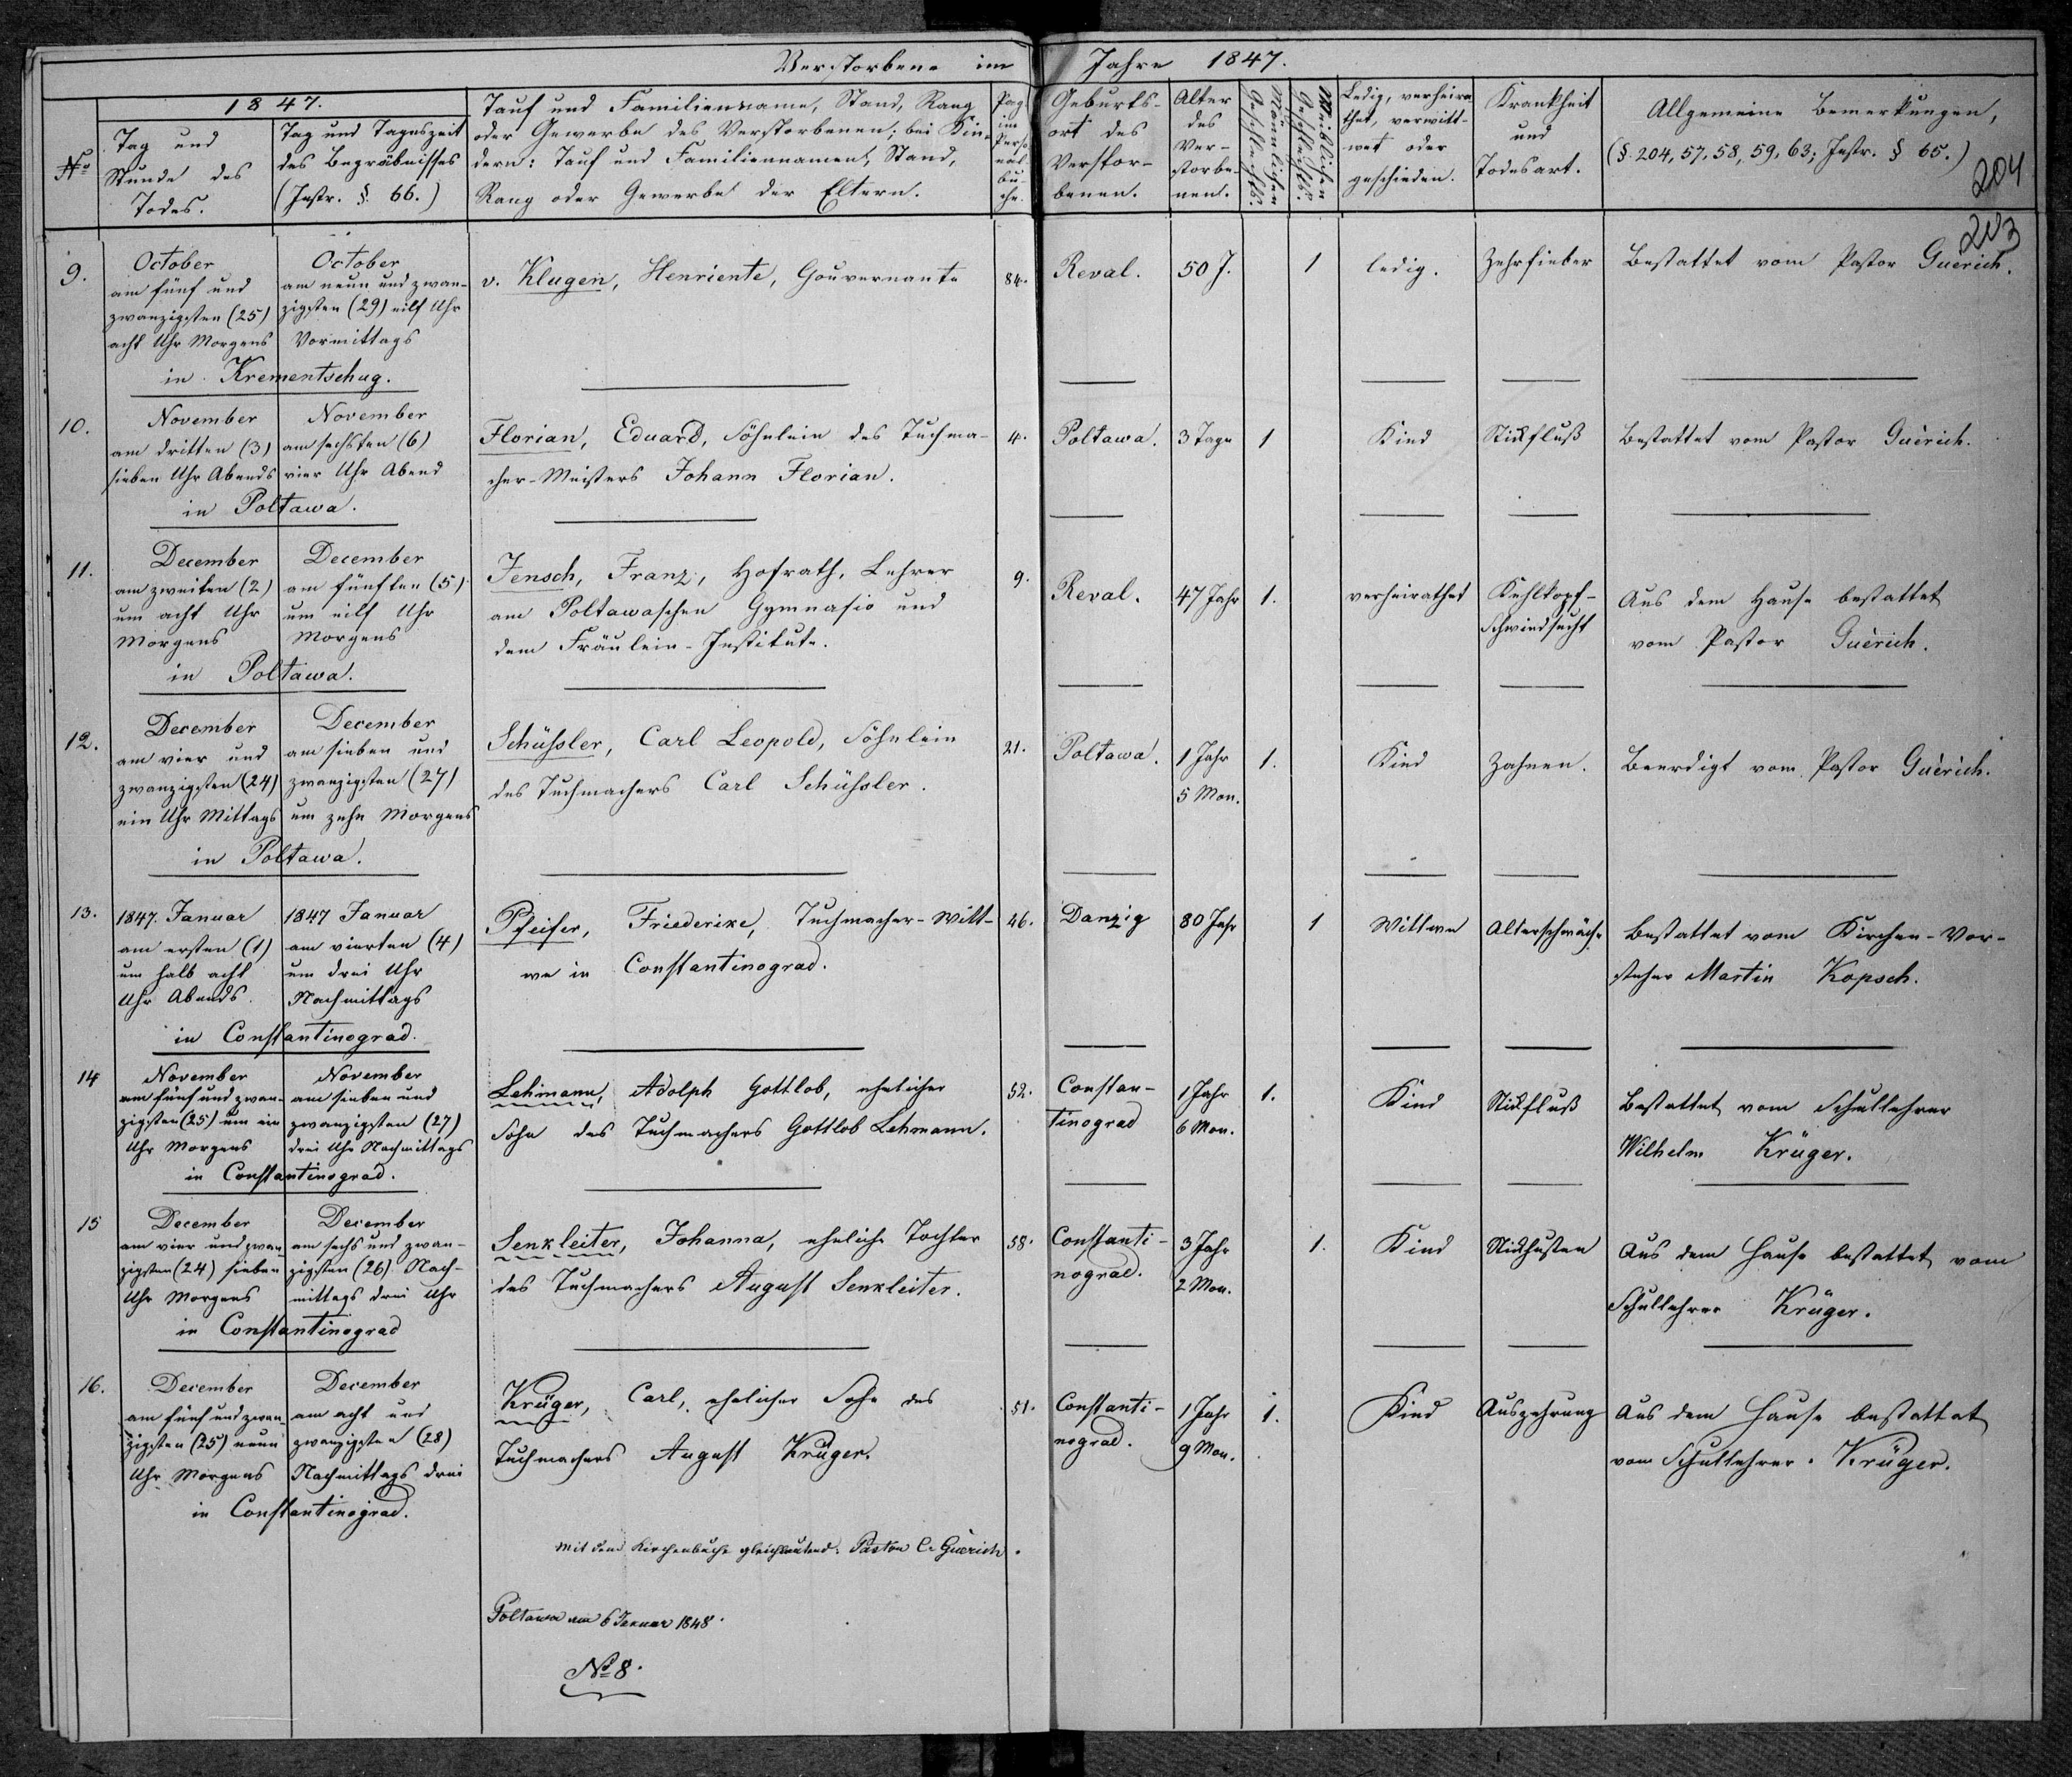 Verstorbene im Jahre 1847.
204
203
No
1847.
Tag und
Stunde des
Todes.
Tag und Tageszeit
des Begräbnisses
(Instr. §. 66.)
Tauf und Familienname, Stand, Rang
oder Gewerbe des Verstorbenen; bei Kin-
dern: Tauf und Familiennamen, Stand,
Rang oder Gewerbe der Eltern.
Pag.
im
Perso-
nal-
bu-
che.
Geburts-
ort des
Verstor-
benen.
Alter
des
Ver-
storbe-
nen.
Männlichen
Geschlechts.
Weiblichen
Geschlechts.
Ledig, verheira-
thet, verwitt-
wet oder
geschieden.
Krankheit
und
Todesart.
Allgemeine Bemerkungen,
(§. 204, 57, 58, 59, 63; Instr. § 65.)
9.
October
am fünf und
zwanzigsten (25)
acht Uhr Morgens
October
am neun und zwan-
zigsten (29) eilf Uhr
Vormittags
in Krementschug.
v. Klugen, Henriente, Gouvernante
84.
Reval.
50 J.
1
ledig.
Zehrfieber
Bestattet vom Pastor Guèrich.
10.
November
am dritten (3)
sieben Uhr Abends
November
am sechsten (6)
vier Uhr Abend
in Poltawa.
Florian, Eduard, Söhnlein des Tuchma-
cher-Meisters Johann Florian.
4.
Poltawa.
3 Tage
1
Kind
Stickfluß
Bestattet vom Pastor Guèrich.
11.
December
am zweiten (2)
um acht Uhr
Morgens
December
am fünften (5)
um eilf Uhr
Morgens
in Poltawa.
Jensch, Franz, Hofrath, Lehrer
am Poltawaschen Gymnasio und
dem Fräulein-Institute.
9.
Reval.
47 Jahr
1.
verheirathet
Kehlkopf-
Schwindsucht
Aus dem Hause bestattet
vom Pastor Guèrich.
12.
December
am vier und
zwanzigsten (24)
ein Uhr Mittags
December
am sieben und
zwanzigsten (27)
um zehn Morgens
in Poltawa.
Schüssler, Carl Leopold, Söhnlein
des Tuchmachers Carl Schüssler.
21.
Poltawa.
1 Jahr
5 Mon.
1.
Kind
Zahnen.
Beerdigt vom Pastor Guèrich.
13.
1847. Januar
am ersten (1)
um halb acht
Uhr Abends.
1847 Januar
am vierten (4)
um drei Uhr
Nachmittags
in Constantinograd.
Pfeifer, Friederike, Tuchmacher-Witt-
we in Constantinograd.
46.
Danzig
80 Jahr
1
Wittwe
Alterschwäche
Bestattet vom Kirchen-Vor-
steher Martin Kopsch.
14
November
am fünf und zwan-
zigsten (25) um ein
Uhr Morgens
November
am sieben und
zwanzigsten (27)
drei Uhr Nachmittags
in Constantinograd.
Lehmann, Adolph Gottlob, ehelicher
Sohn des Tuchmachers Gottlob Lehmann.
52.
Constan-
tinograd
1 Jahr
6 Mon.
1.
Kind
Stickfluß
Bestattet vom Schullehrer
Wilhelm Krüger.
15
December
am vier und zwan-
zigsten (24) sieben
Uhr Morgens
December
am sechs und zwan-
zigsten (26) Nach-
mittags drei Uhr
in Constantinograd
Senkleiter, Johanna, eheliche Tochter
des Tuchmachers August Senkleiter.
58.
Constanti-
nograd.
3 Jahr
2 Mon.
1.
Kind
Stickhusten
Aus dem Hause bestattet vom
Schullehrer Krüger.
16.
December
am fünf und zwan-
zigsten (25) neun
Uhr Morgens
December
am acht und
zwanzigsten (28)
Nachmittags drei
in Constantinograd.
Krüger, Carl, ehelicher Sohn des
Tuchmachers August Krüger.
51.
Constanti-
nograd.
1 Jahr
9 Mon.
1.
Kind
Auszehrung
Aus dem Hause bestattet
vom Schullehrer Krüger.
Mit dem Kirchenbuche gleichlautend: Pastor C. Guèrich.
Poltawa am 6 Januar 1848.
No 8.